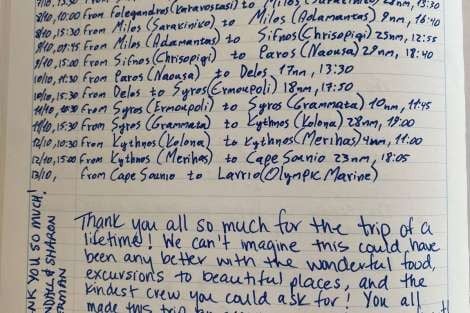 10:00 From Folegandros (Karavostasi) to Milos
From Milos (Sarakiniko) to Milos (Adamantas) 9nm, 16:40
8/10, 07:45 From Milos (Adamantas) to Sifnos (Chrisopigi) 25nm, 12:55
9/10, 15:00 From Sifnos (Chrisopigi) to Paros (Naousa) 29nm, 18:40
10/10, 11:30 From Paros (Naousa) to Delos 17nm, 13:30
10/10, 15:30 From Delos to Syros (Ermoupoli) 18nm, 17:50
11/10, 10:30 From Syros (Ermoupoli) to Syros (Grammata) 10nm, 11:45
11/10, 15:30 From Syros (Grammata) to Kythnos (Kolona) 28nm, 19:00
12/10, 10:30 From Kythnos (Kolona) to Kythnos (Merihas) 4nm, 11:00
12/10, 15:00 From Kythnos (Merihas) to Cape Sounio 23nm, 18:05
13/10, From Cape Sounio to Lavrio (Olympic Marine)
Thank you all so much for the trip of a
lifetime! We can't imagine this could have
been any better with the wonderful food,
excursions to beautiful places, and the
kindest crew you could ask for! You all
made this trip
YOU SO MUCH!
& SHARON